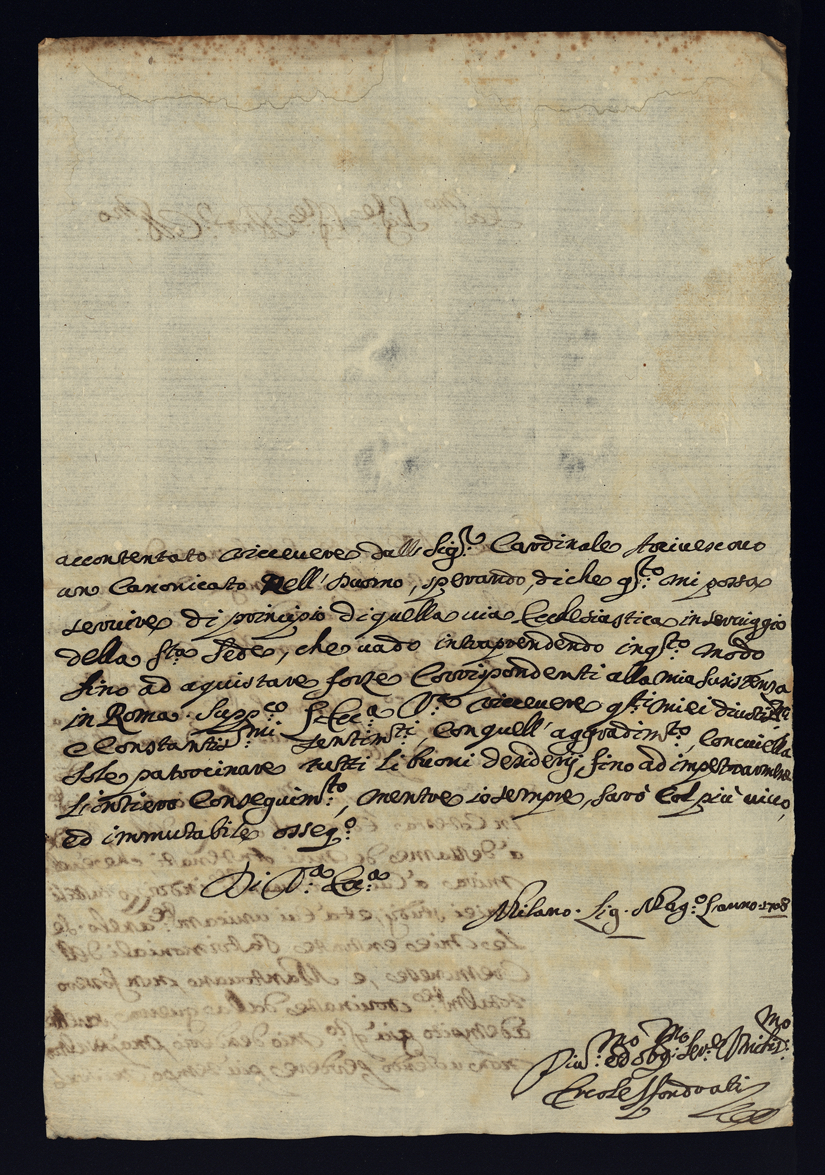 accontentato riceuere dall Sig.r Cardinale Arciuescouo
un Canonicato Nell' Duomo, sperando, di che q.sto mi possa
seruire di principio di quella uia Ecclesiastica in seruiggio
della S.ta Sede, che uado intraprendendo in q.sto modo
fino ad aquistare forze Corrispondenti alla mia susistenza
in Roma. Supp.co V. Ecc.a riceuere q.sti miei diuoti.mi
e Constanti.mi sentim.ti, Con quell' aggradim.to, Con cui ella
sole patrocinare tutti li buoni desiderij, fino ad impetrarmene
L'intiero Conseguim.to, mentre io sempre, sarò Col più uiuo,
ed immutabile osseq.o
Di V.a Ecc.a
Milano. Mag.o L'anno. 1708
Diu.mo ed obg.mo Ser.e
Ercole Sfondrati